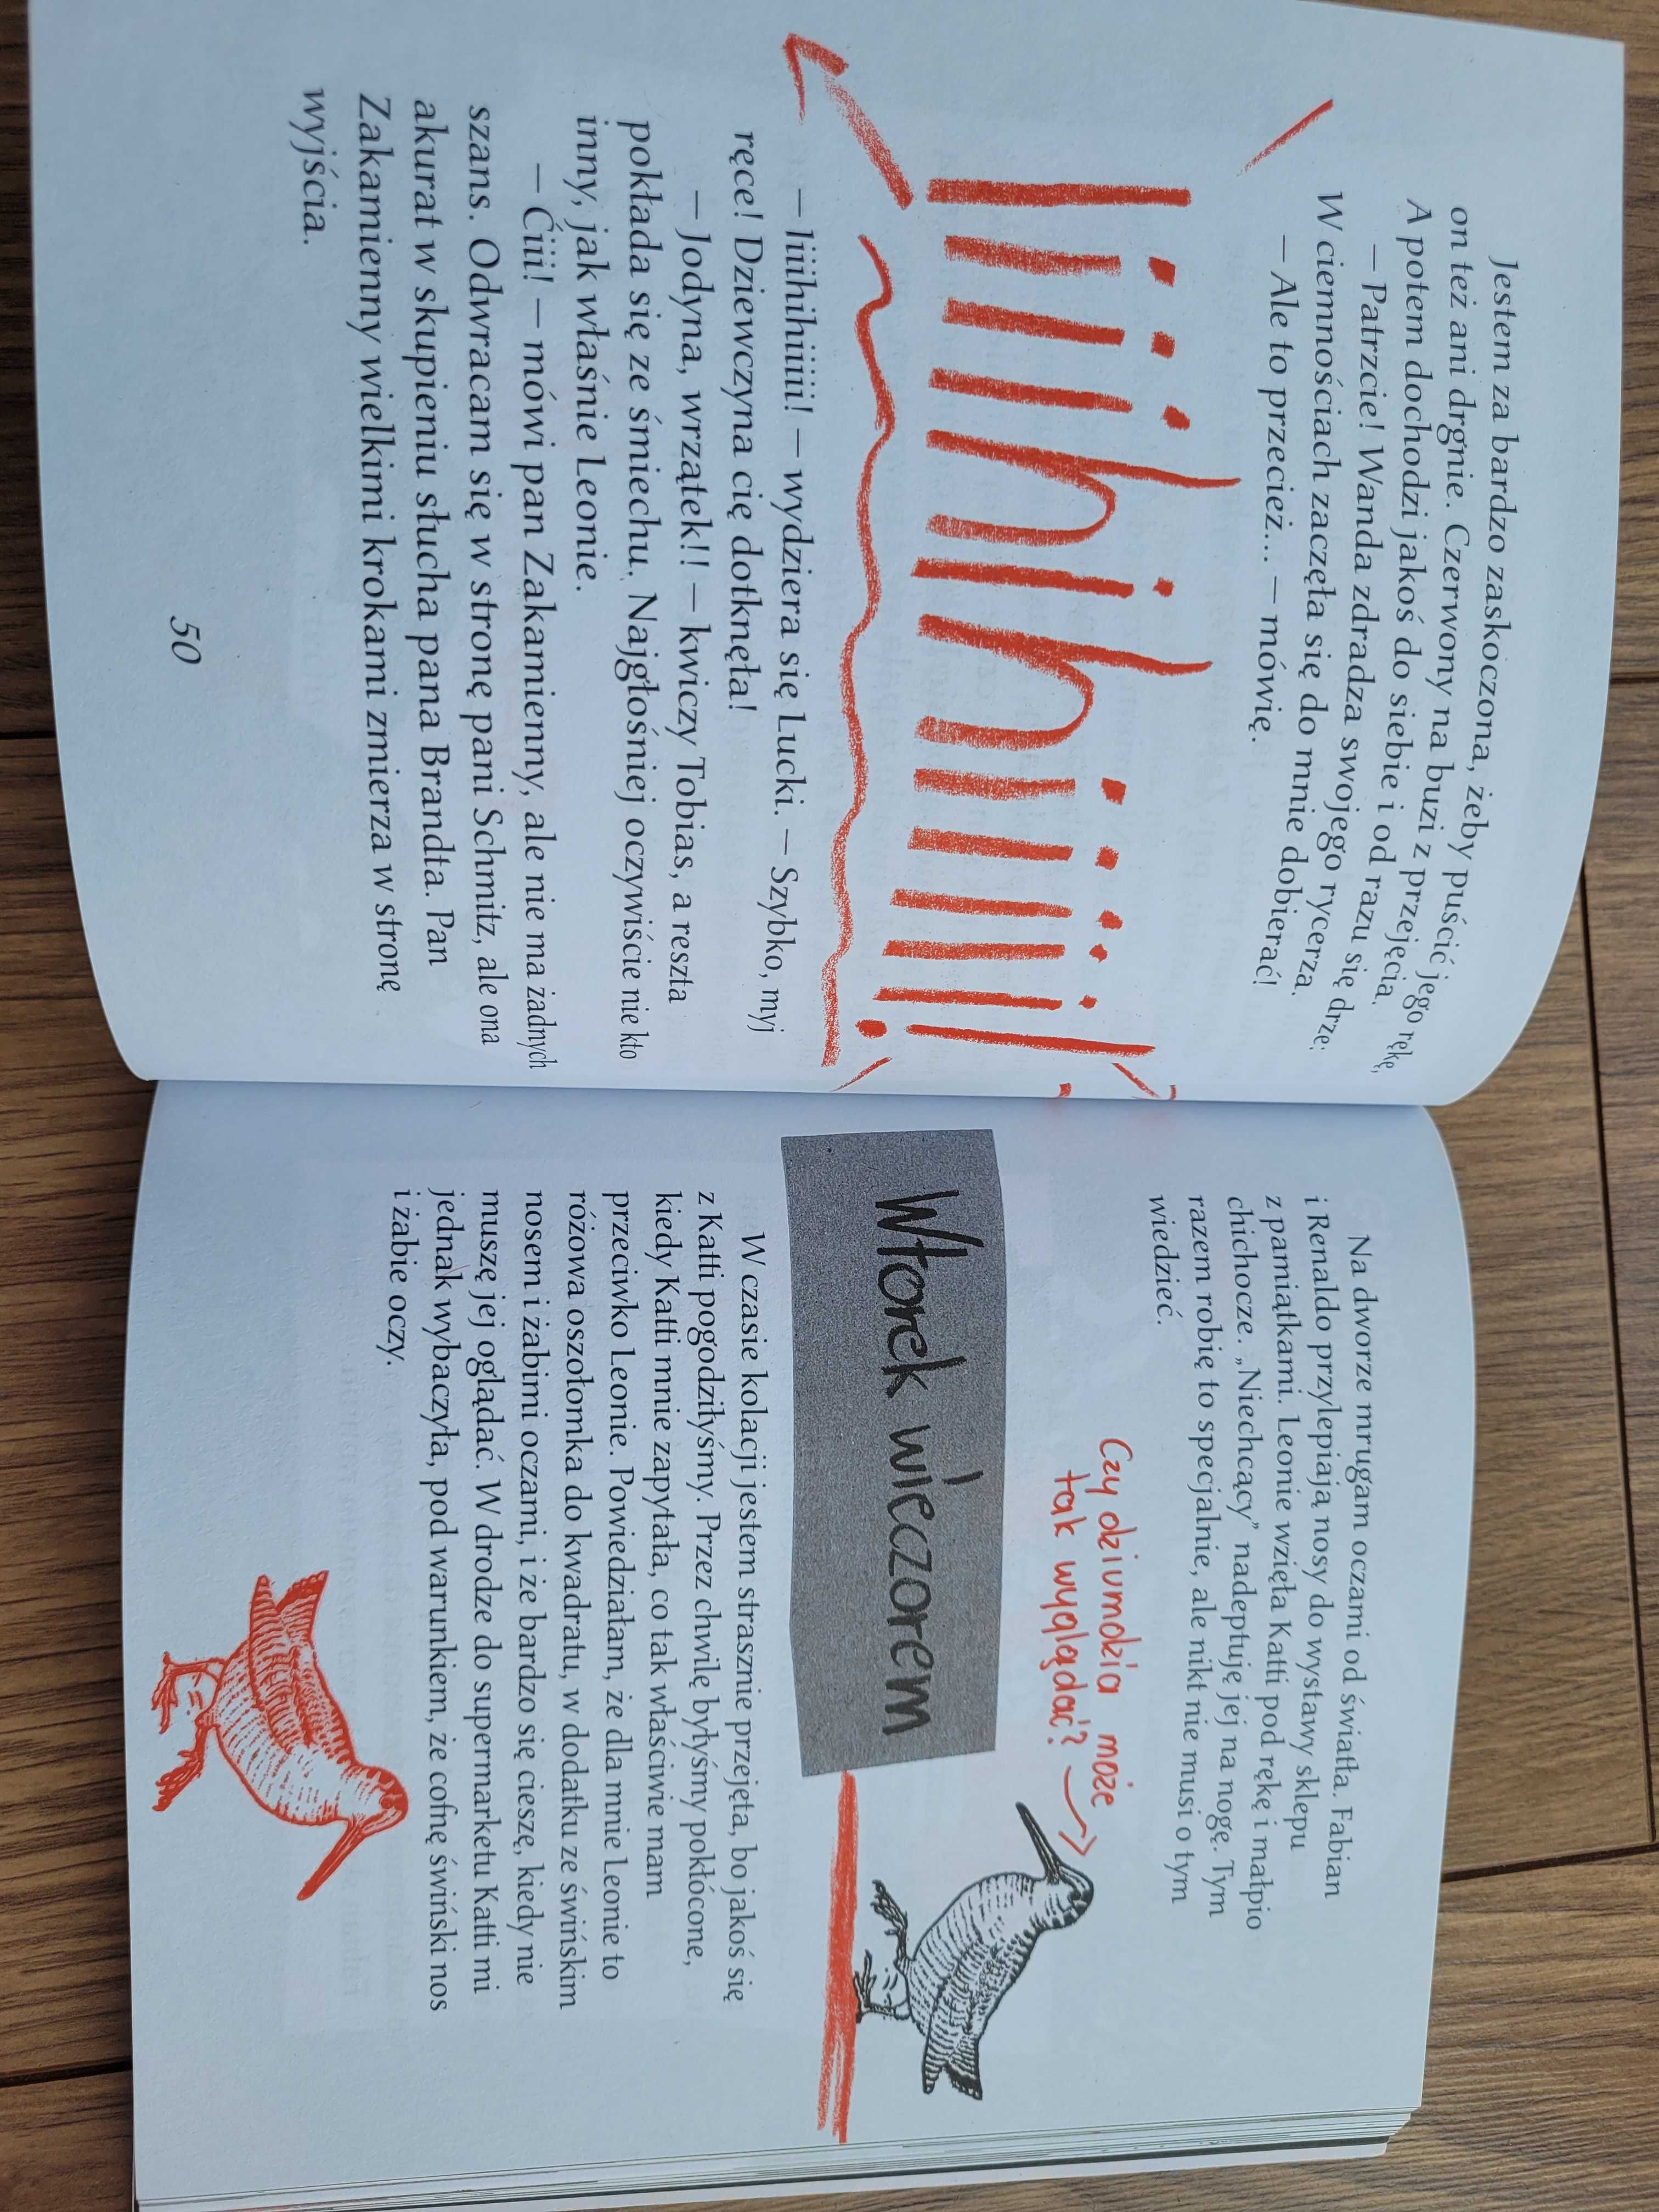 Jestem za bardzo zaskoczona, żeby puścić jego rękę,
on też ani drgnie. Czerwony na buzi z przejęcia.
A potem dochodzi jakoś do siebie i od razu się drze:
– Patrzcie! Wanda zdradza swojego rycerza.
W ciemnościach zaczęła się do mnie dobierać!
– Ale to przecież... – mówię.
Iiiihihiiiii!
– Iiiihihiiiii! – wydziera się Lucki. – Szybko, myj
ręce! Dziewczyna cię dotknęła!
– Jodyna, wrzątek!! – kwiczy Tobias, a reszta
pokłada się ze śmiechu. Najgłośniej oczywiście nie kto
inny, jak właśnie Leonie.
– Ćiii! – mówi pan Zakamienny, ale nie ma żadnych
szans. Odwracam się w stronę pani Schmitz, ale ona
akurat w skupieniu słucha pana Brandta. Pan
Zakamienny wielkimi krokami zmierza w stronę
wyjścia.
50
Na dworze mrugam oczami od światła. Fabian
i Renaldo przylepiają nosy do wystawy sklepu
z pamiątkami. Leonie wzięła Katti pod rękę i małpio
chichocze. „Niechcący” nadeptuję jej na nogę. Tym
razem robię to specjalnie, ale nikt nie musi o tym
wiedzieć.
Czy dziumdzia może
tak wyglądać?
Wtorek wieczorem
W czasie kolacji jestem strasznie przejęta, bo jakoś się
z Katti pogodziłyśmy. Przez chwilę byłyśmy pokłócone,
kiedy Katti mnie zapytała, co tak właściwie mam
przeciwko Leonie. Powiedziałam, że dla mnie Leonie to
różowa oszołomka do kwadratu, w dodatku ze świńskim
nosem i żabimi oczami, i że bardzo się cieszę, kiedy nie
muszę jej oglądać. W drodze do supermarketu Katti mi
jednak wybaczyła, pod warunkiem, że cofnę świński nos
i żabie oczy.